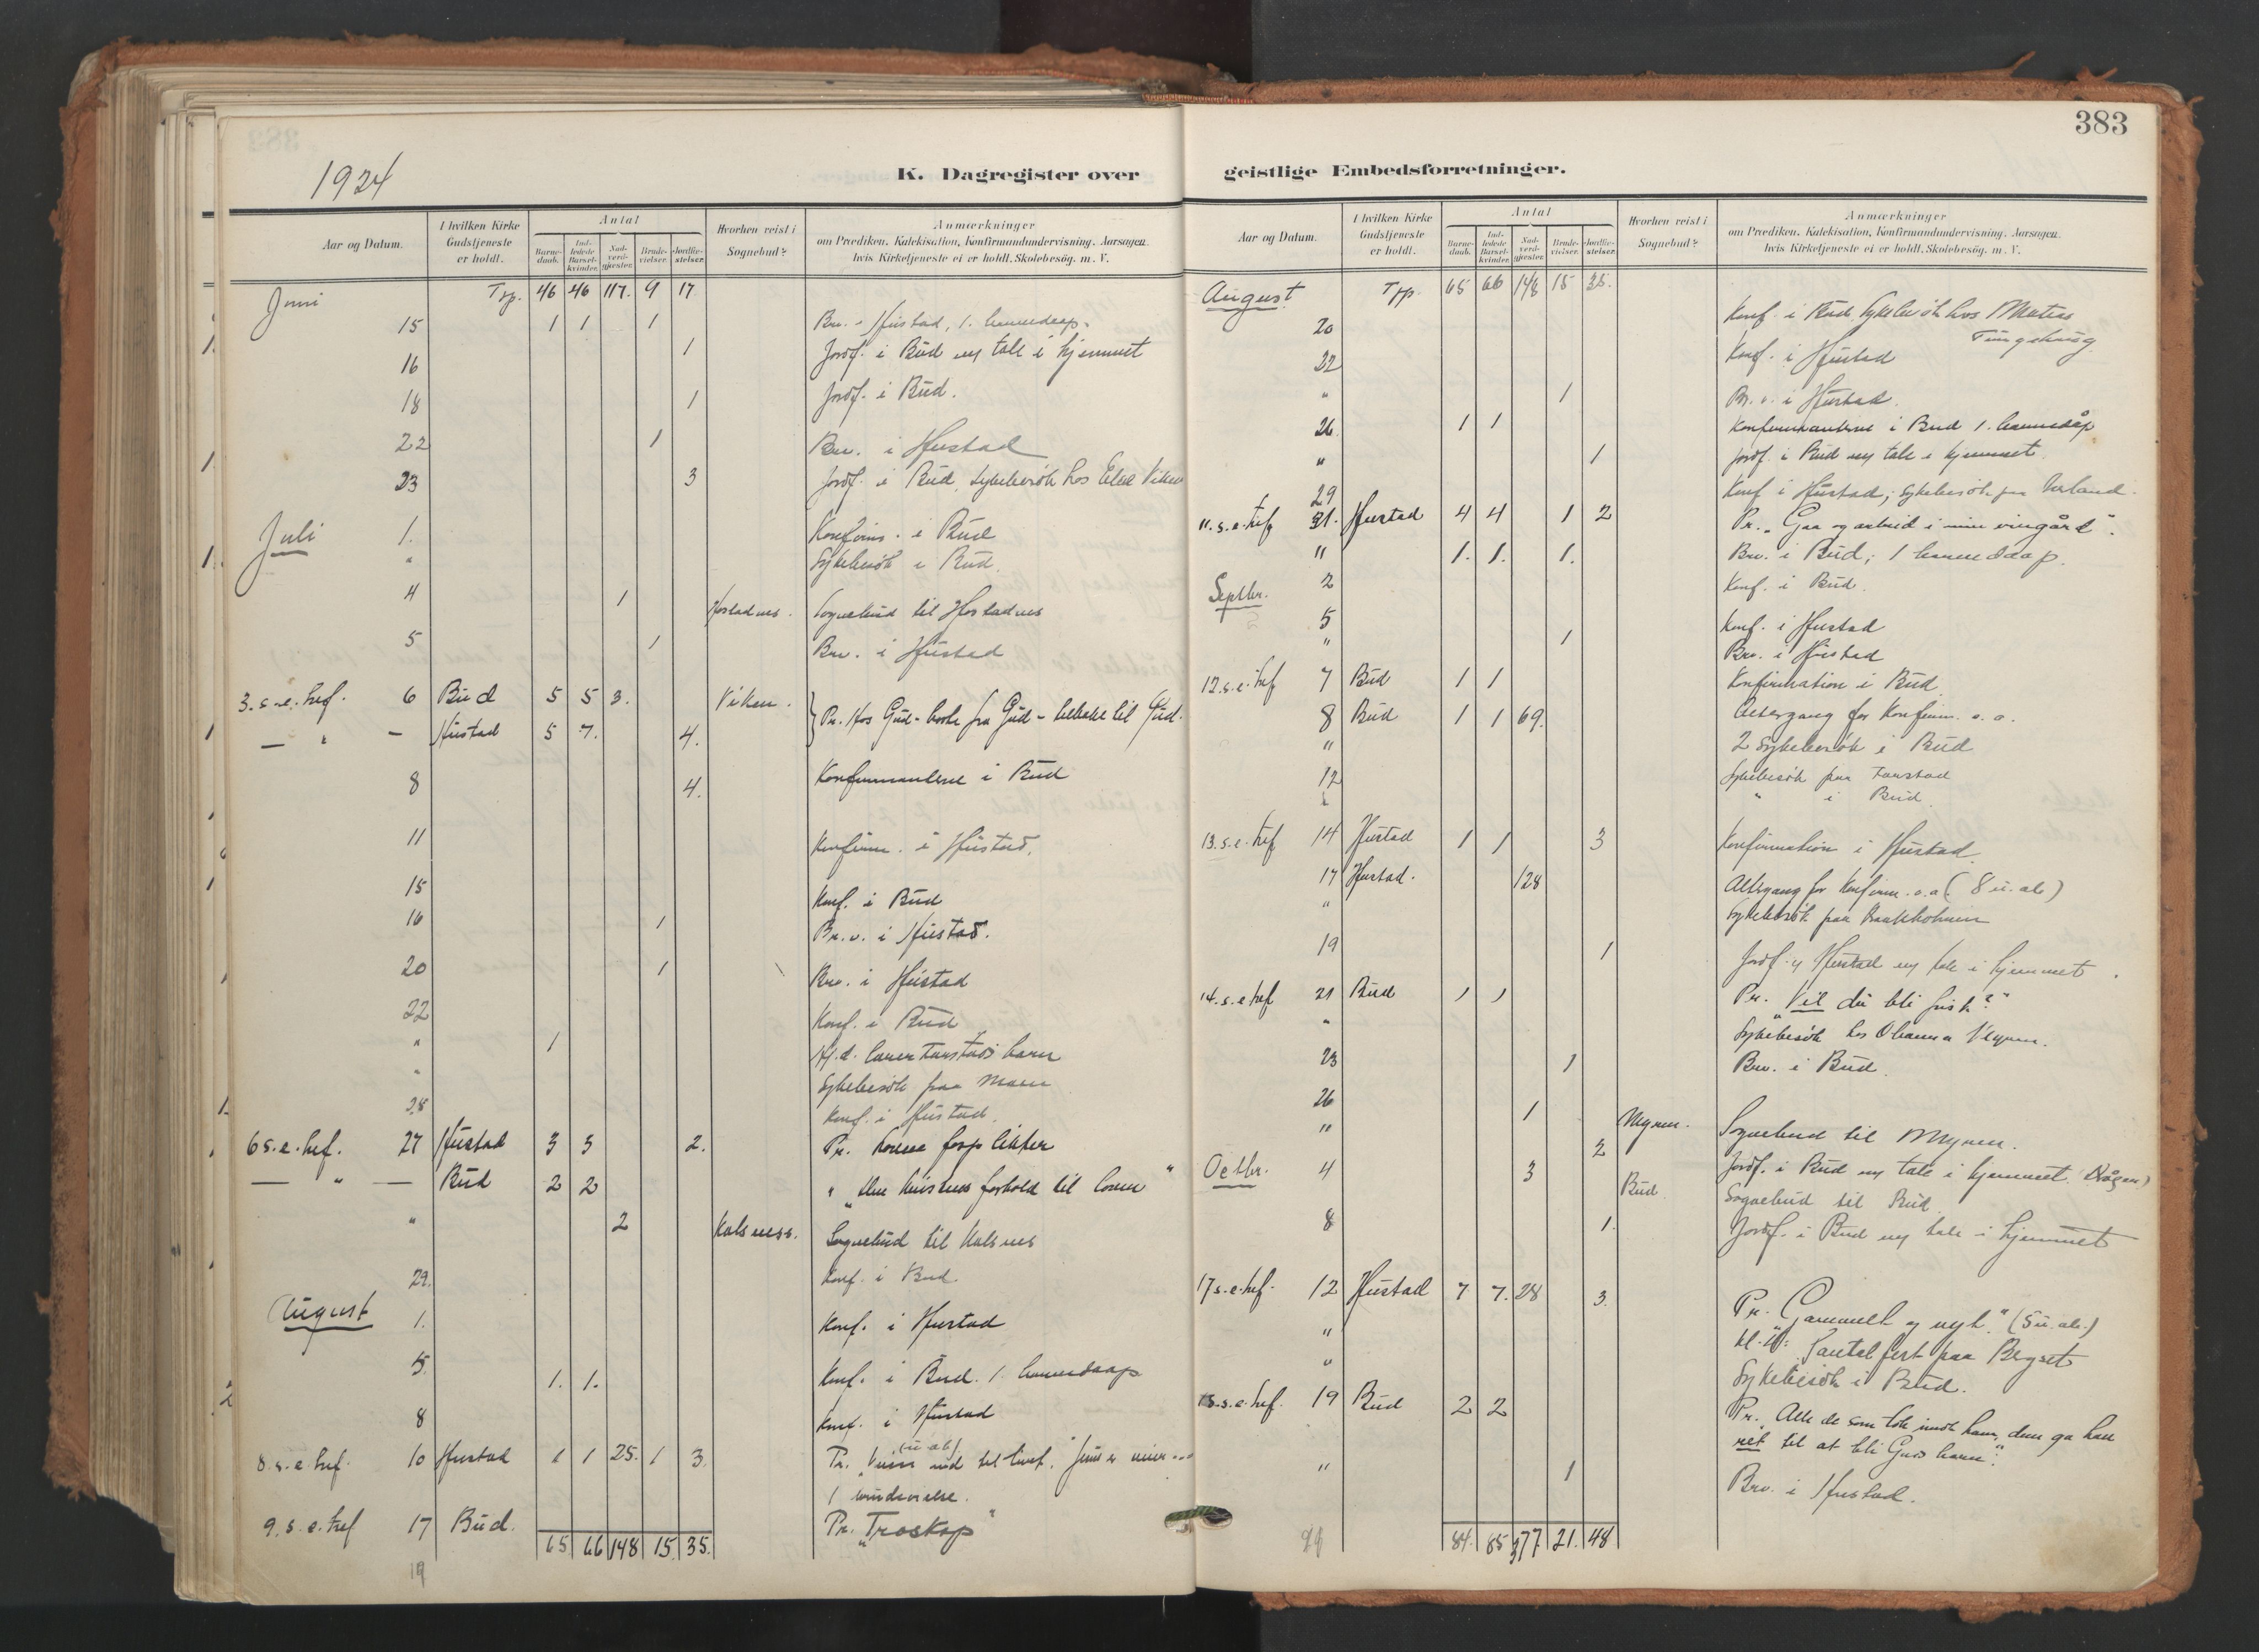 383
1924
K. Dagregister over
Aar og Datum.
I hvilken Kirke Gudstjeneste er holdt.
Antal
Barne-daab.
Ind-ledede Barsel-kvinder.
Nad-verd-gjester.
Brude-vielser.
Jordfæ-stelser.
Hvorhen reist i Sognebud?
Anmærkninger
om Prædiken, Katekisation, Konfirmandundervisning. Aarsagen,
hvis Kirketjeneste ei er holdt. Skolebesøg. m. V.
Juni Trp. 46 46 117. 9 17
15 1 1 1 Brv. i Hustad, 1. barnedaap.
16 1 Jordf. i Bud og tale i hjemmet
18 1 Jordf. i Bud.
22 1 Brv. i Hustad
23 3 Jordf. i Bud, sykebesøk hos Viken
Juli 1. Konfirm. i Bud
" Sykebesøk i Bud.
4 1 Hostadnes. Sognebud til Hostadnes
5 1 Brv. i Hustad
3. s. e. tref. 6 Bud 5 5 3. Viken. Pr. Hos Gud - borte fra Gud - tilbake til Gud.
— " — Hustad 5 7. 4.
8 4. Konfirmantene i Bud
11 Konfirm. i Hustad.
15 Konf. i Bud
16 1 Br.v. i Hustad.
20 1 Brv. i Hustad
22 Konf. i Bud
" 1 Hj.d. Tarstads barn
" Sykebesøk paa
28 Konf. i Hustad.
6 s. e. tref. 27 Hustad 3 3 2. Pr.
— " — Bud 2 2 " forhold til loven"
" 2 Kalsness. Sognebud til Kalsnes
29. Konf. i Bud
August 1. Konf. i Hustad
5. 1. 1. Konf. i Bud. 1. barnedaap
8 Konf. i Hustad
8. s. e. tref. 10 Hustad 1 1 25. 1 3. Pr. ind til livet.
1 brudevielse.
9. s. e. tref 17 Bud. Pr. "Troskap"
65 66 148 15. 35.
19
geistlige Embedsforretninger.
Aar og Datum.
I hvilken Kirke Gudstjeneste er holdt.
Antal
Barne-daab.
Ind-ledede Barsel-kvinder.
Nad-verd-gjester.
Brude-vielser.
Jordfæ-stelser.
Hvorhen reist i Sognebud?
Anmærkninger
om Prædiken, Katekisation, Konfirmandundervisning. Aarsagen,
hvis Kirketjeneste ei er holdt. Skolebesøg. m. V.
August Trp. 65 66 148 15 35.
20 Konf. i Bud. Sykebesøk hos Matias Tungehaug
22 Konf. i Hustad
" 1 Br. v. i Hustad.
26 1 1 Konfirmantene i Bud 1. barnedåp
" 1 Jordf. i Bud og tale i hjemmet.
29 Konf i Hustad; sykebesøk paa
11. s. e. tref 31. Hustad 4 4 1 2 Pr. "Gaa og arbeid i min vingård".
" 1. 1. 1. Brv. i Bud; 1 barnedaap.
Septbr. 2 Konf. i Bud.
5 Konf. i Hustad
" 1 Brv. i Hustad
12. s. e. tref 7 Bud 1 1 Konfirmation i Bud
8 Bud 1 1 69. Altergang for Konfirm. o. a.
" 2 Sykebesøk i Bud
12 Sykebesøk paa Tarstad
" " i Bud.
13. s. e. tref 14 Hustad 1 1 3 Konfirmation i Hustad.
17 Hustad. 128 Altergang for Konfirm. o. a. (8 u. ab)
" Sykebesøk paa
19 1 Jordf. i Hustad og tale i hjemmet.
14. s. e. tref 21 Bud 1 1 Pr. "Vil du bli frisk?"
" Sykebesøk hos
23 1 Brv. i Bud.
26 1 Myren. Sognebud til Myren.
" 2 Jordf. i Bud og tale i hjemmet
Octbr. 4 3 Bud. Sognebud til Bud
8 1. Jordf. i Bud og tale i hjemmet
17 s. e. tref. 12 Hustad 7 7. 28 3. Pr. "Gammelt og nyt." (5 u. ab.)
" Santalfest paa
" Sykebesøk i Bud.
18. s. e. tref. 19 Bud 2 2 Pr. "Alle de som tok imot ham, dem ga han
ret til at bli Guds barn".
" 1 Brv. i Hustad.
84. 85 177. 21. 48